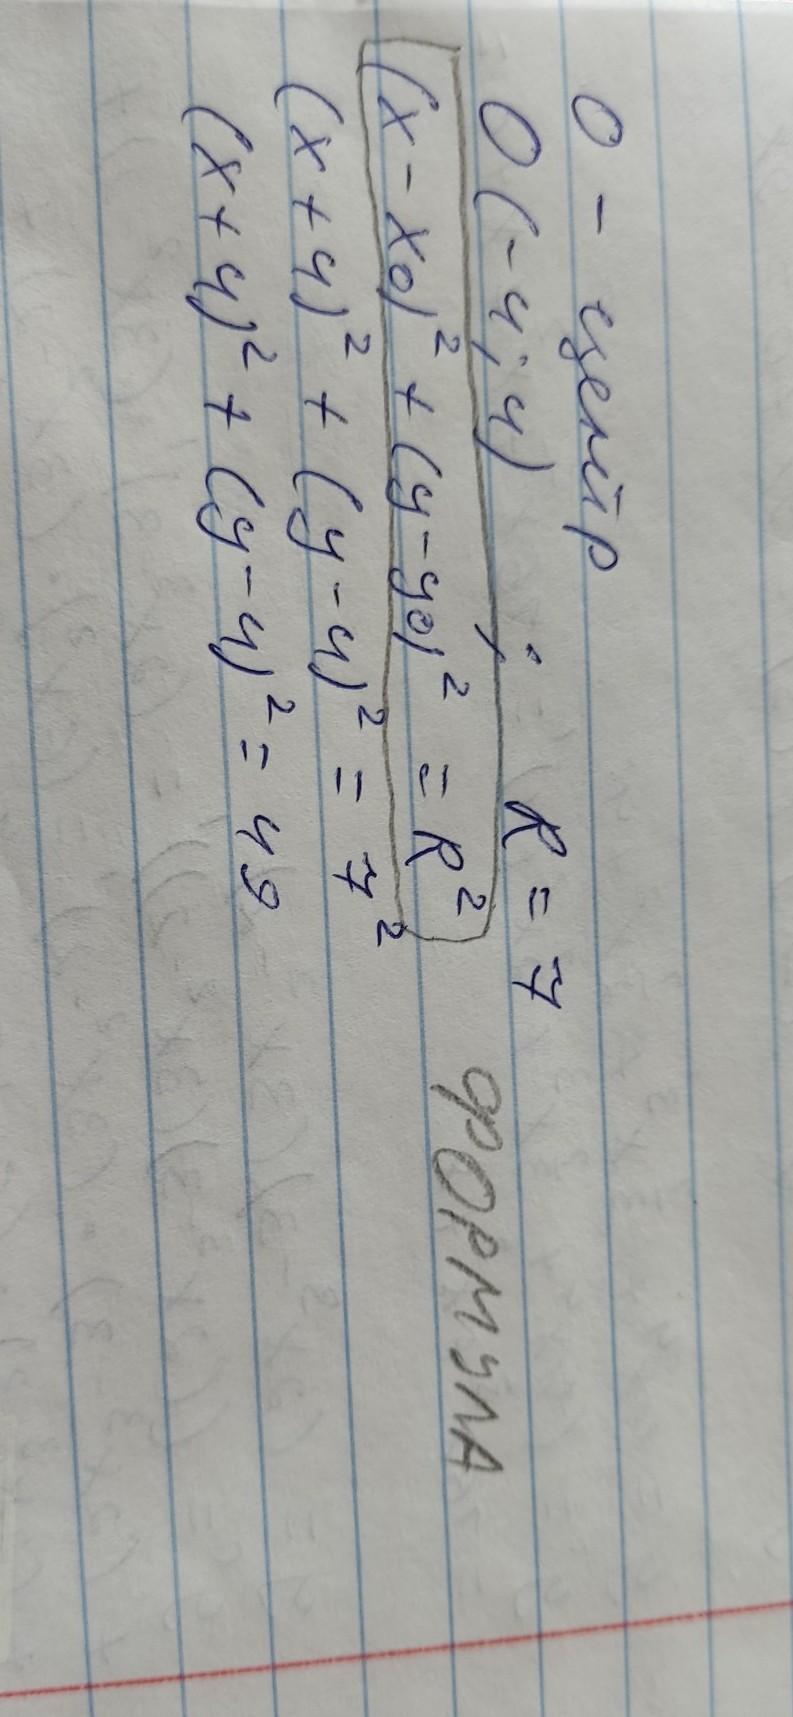 O - центр
O (-4; 4) ; R = 7
(x - x₀)² + (y - y₀)² = R² ФОРМУЛА
(x + 4)² + (y - 4)² = 7²
(x + 4)² + (y - 4)² = 49